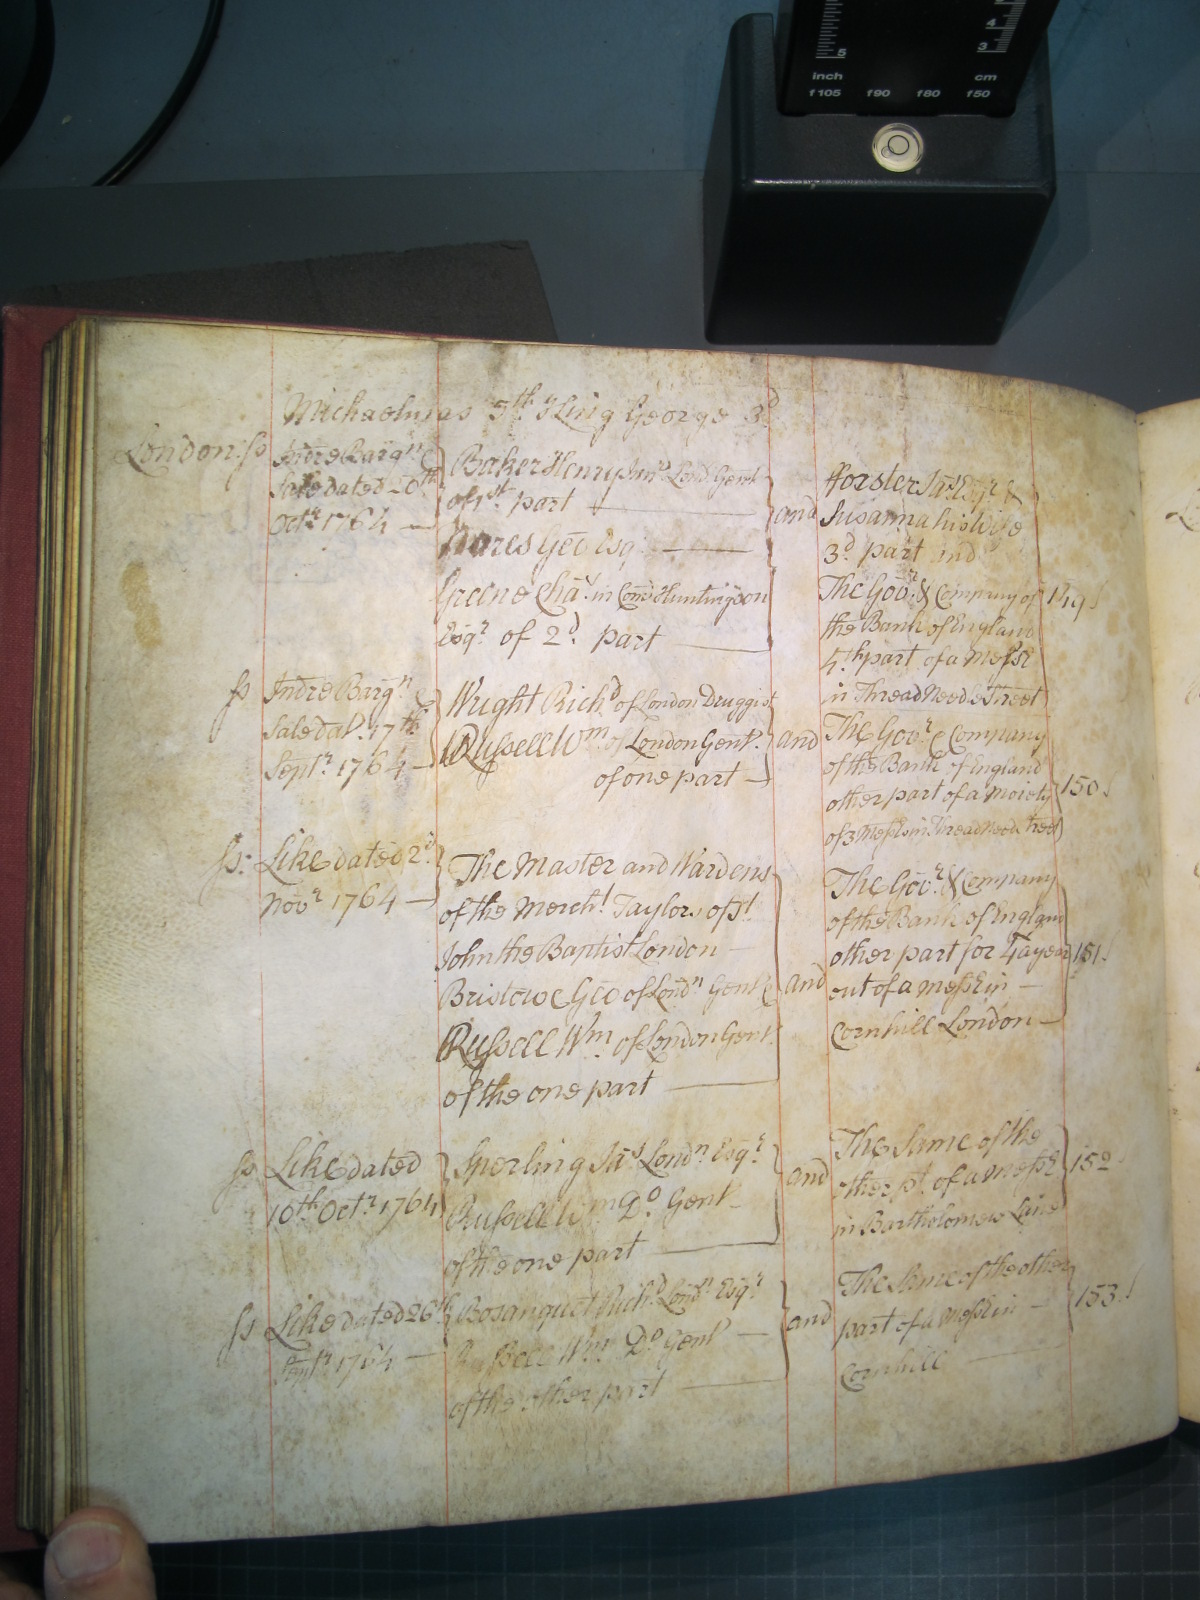 5
4
3
inch
cm
f105 f90 f80 f50
Michaelmas 5th King George 3d
London: ss
Indre Bargn &
Sale dated
Octr 1764
Baker Henry Junr Lond. Gent
of 1st part
Nares Geo Esqr
Greene Chas in Com Huntingdon
Esqr of 2d part
and
fforster Jas Esqr &
Susanna his Wife
3d part and
The Govr & Company of
the Bank of England
4th part of a Messe
in Thread Needle Street
149
ss Indre Bargn &
Sale dat. 17th
Septr 1764
Wright Richd of London Druggist
Russell Wm of London Gent.
of one part
and
The Govr & Company
of the Bank of England
other part of a Moiety
of 3 Messes in Thread Need. Street
150
ss: Like dated 2d
Novr 1764
The Master and Wardens
of the Mercht Taylors of St
John the Baptist London
Bristowe Geo of Londn Gent &
Russell Wm of London Gent.
of the one part
and
The Govr & Company
of the Bank of England
other part for year
out of a Messe in
Cornhill London
151
ss Like dated
10th Octr 1764
Sperling Jas Londn Esqr
Russell Wm Do Gent
of the one part
and
The Same of the
other pt. of a Messe
in Bartholomew Lane
152
ss Like dated 26th
Septr 1764
Bosanquet Richd Londn Esqr
Russell Wm Do Gent
of the other part
and
The Same of the other
part of a Messe in
Cornhill
153